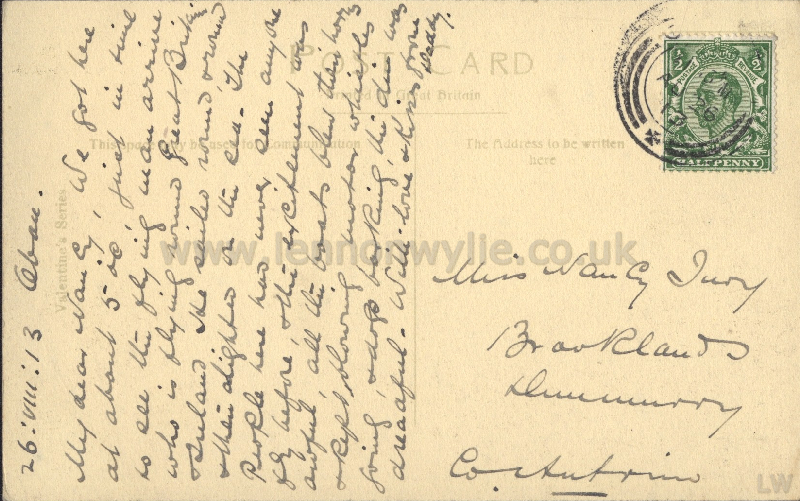 POST CARD
Printed in Great Britain
This space may be used for Communication
The Address to be written
here
Valentine's Series
26:VIII:13 Oban.
My dear Nancy, We got here
at about 5-20, just in time
to see the flying man arrive
who is flying round Great Britain
& Ireland. He sailed round & round
& then alighted on the sea. The
People here had never seen anyone
fly before, & the excitement was
awful, all the boats blew their horns
& kept blowing, motor whistles
going, & dogs barking, the din was
dreadful. With love & kisses from
Daddy.
Miss Nancy
Brooklands
Dunmurry
Co. Antrim
½ ½
HALFPENNY
www.lennonwylie.co.uk
LW